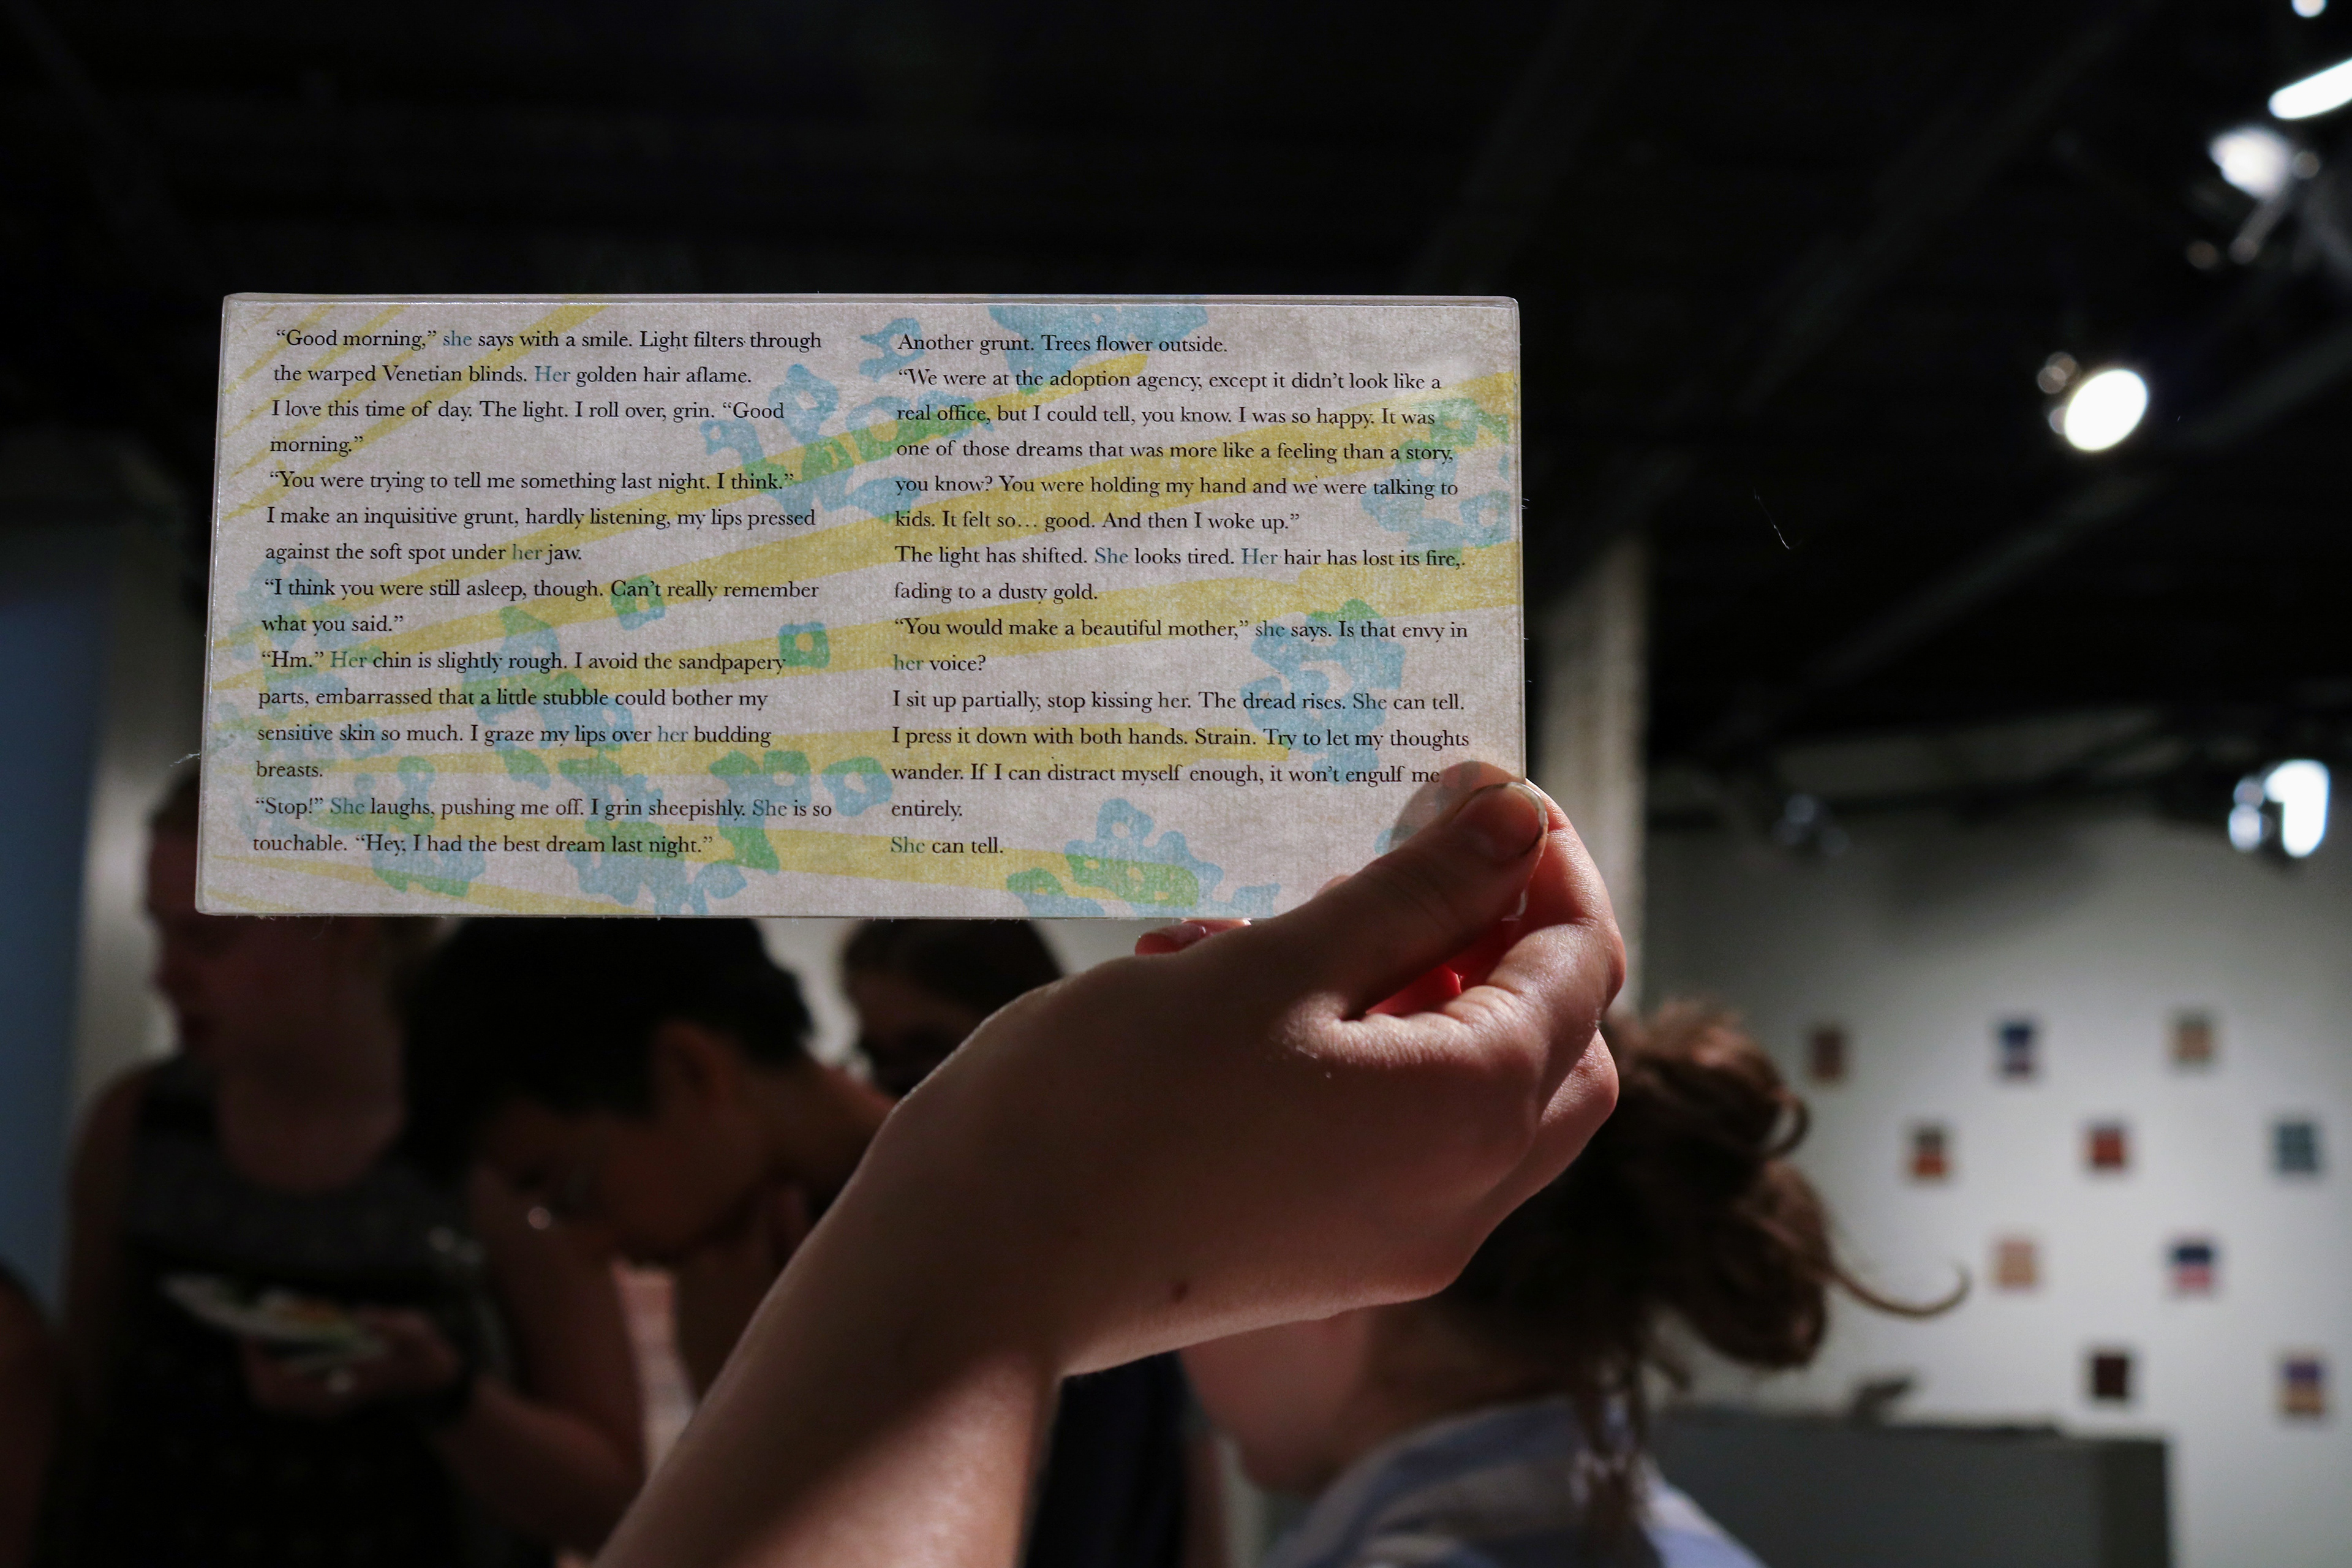 “Good morning,” she says with a smile. Light filters through
the warped Venetian blinds. Her golden hair aflame.
I love this time of day. The light. I roll over, grin. “Good
morning.”
“You were trying to tell me something last night. I think.”
I make an inquisitive grunt, hardly listening, my lips pressed
against the soft spot under her jaw.
“I think you were still asleep, though. Can’t really remember
what you said.”
“Hm.” Her chin is slightly rough. I avoid the sandpapery
parts, embarrassed that a little stubble could bother my
sensitive skin so much. I graze my lips over her budding
breasts.
“Stop!” She laughs, pushing me off. I grin sheepishly. She is so
touchable. “Hey, I had the best dream last night.”
Another grunt. Trees flower outside.
“We were at the adoption agency, except it didn’t look like a
real office, but I could tell, you know. I was so happy. It was
one of those dreams that was more like a feeling than a story,
you know? You were holding my hand and we were talking to
kids. It felt so… good. And then I woke up.”
The light has shifted. She looks tired. Her hair has lost its fire,
fading to a dusty gold.
“You would make a beautiful mother,” she says. Is that envy in
her voice?
I sit up partially, stop kissing her. The dread rises. She can tell.
I press it down with both hands. Strain. Try to let my thoughts
wander. If I can distract myself enough, it won’t engulf me
entirely.
She can tell.